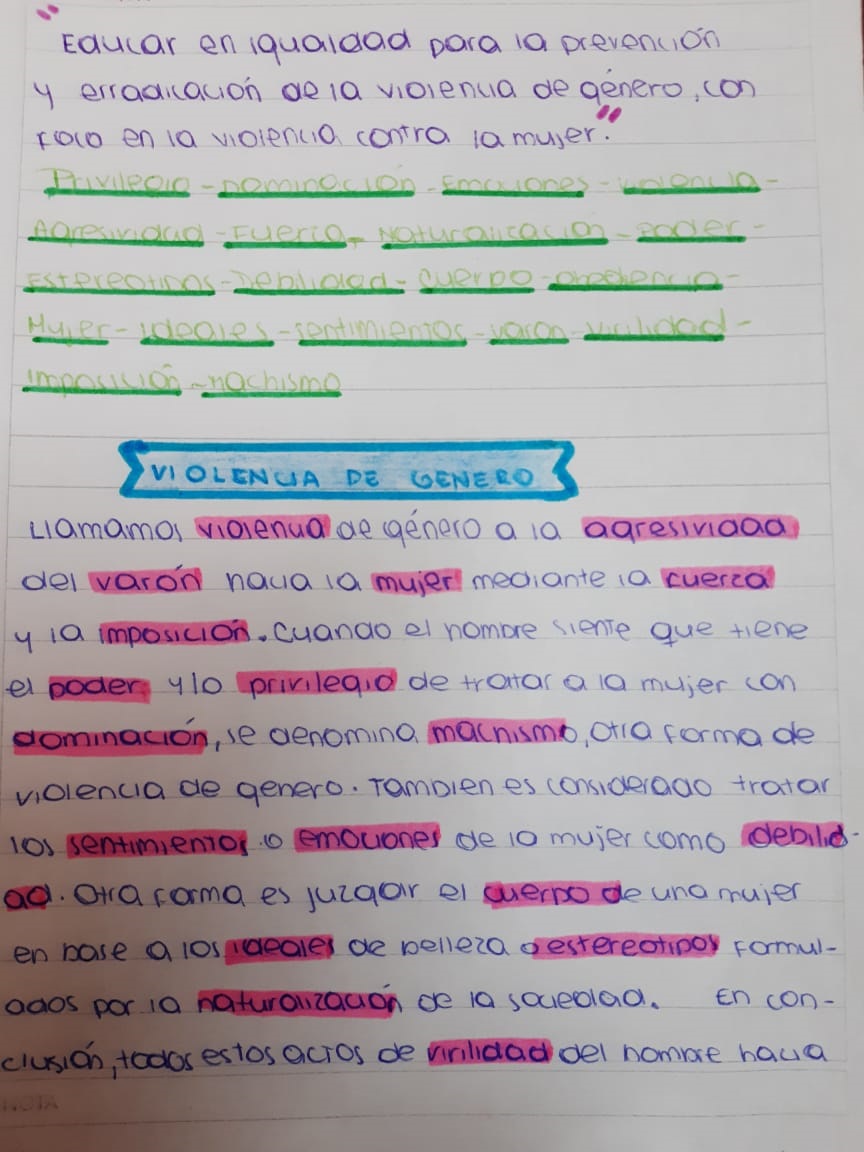 "Educar en igualdad para la prevención
y erradicación de la violencia de género, con
foco en la violencia contra la mujer."
Privilegio - Dominación - Emociones - Violencia -
Agresividad - Fuerza - Naturalización - Poder -
Estereotipos - Debilidad - Cuerpo - obediencia -
Mujer - ideales - sentimientos - varon - virilidad -
imposición - machismo
VIOLENCIA DE GENERO
Llamamos violencia de género a la agresividad
del varón hacia la mujer mediante la fuerza
y la imposición. Cuando el hombre siente que tiene
el poder y/o privilegio de tratar a la mujer con
dominación, se denomina machismo, otra forma de
violencia de genero. Tambien es considerado tratar
los sentimientos o emociones de la mujer como debilid-
ad. Otra forma es juzgar el cuerpo de una mujer
en base a los ideales de belleza o estereotipos formul-
ados por la naturalización de la sociedad. En con-
clusión, todos estos actos de virilidad del hombre hacia
NOTA